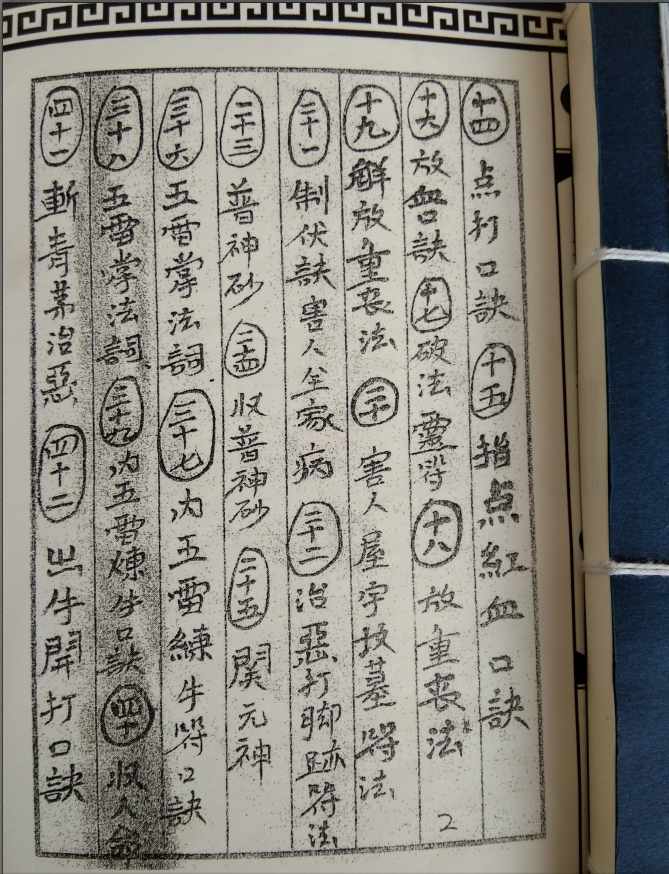 十四 点打口訣 十五 指点紅血口訣
十六 放血口訣 十七 破法靈符 十八 放重喪法
十九 解放重喪法 二十 害人屋宇坟墓符法
二十一 制伏訣害人全家病 二十二 治惡打脚跡符法
二十三 普神砂 二十四 收普神砂 二十五 関元神
三十六 五雷掌法詞 三十七 内五雷練牛符口訣
三十八 五雷掌法詞 三十九 内五雷煉牛口訣 四十 收人命
四十一 斬青茅治惡 四十二 出牛開打口訣
2